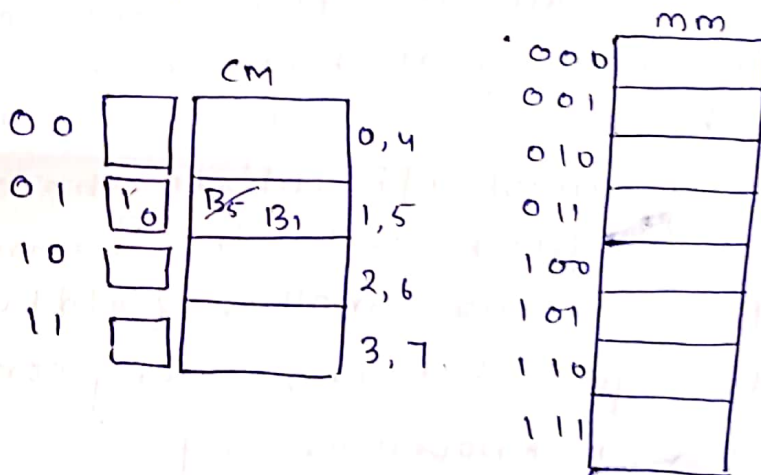 CM
00 0,4
01 1 0 B5 B1 1,5
10 2,6
11 3,7
mm
000
001
010
011
100
101
110
111